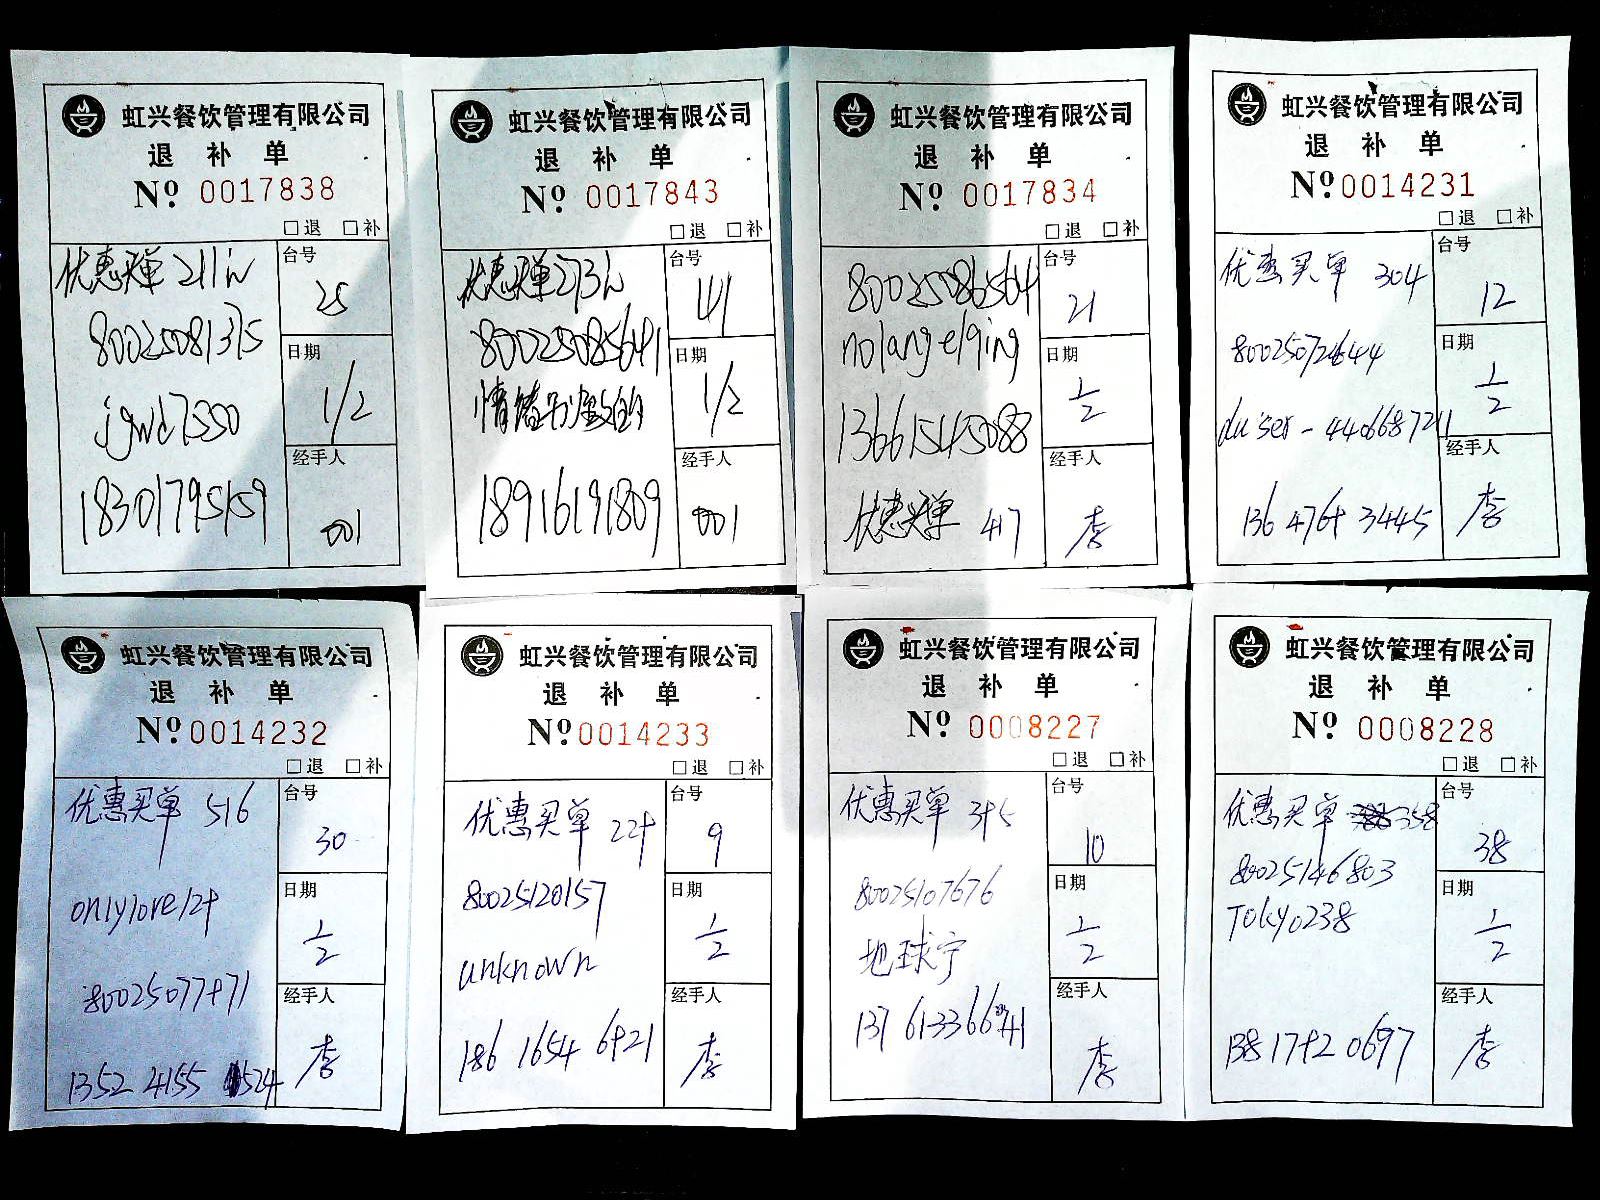 虹兴餐饮管理有限公司
退 补 单
Nº 0017838
□退 □补
优惠买单 211
台号
25
80025081375
日期
1/2
jgwd7550
经手人
18301795159
001
虹兴餐饮管理有限公司
退 补 单
Nº 0017843
□退 □补
优惠买单 273
台号
41
80025085641
日期
1/2
经手人
18916191809
001
虹兴餐饮管理有限公司
退 补 单
Nº 0017834
□退 □补
台号
80025086564
21
nolangelqing
日期
1/2
13661545088
经手人
优惠买单 417
李
虹兴餐饮管理有限公司
退 补 单
Nº 0014231
□退 □补
优惠买单 304
台号
12
80025072644
日期
1/2
duser-4406687211
经手人
136 4764 3445
李
虹兴餐饮管理有限公司
退 补 单
Nº 0014232
□退 □补
优惠买单 516
台号
30
onlylove129
日期
1/2
80025077971
经手人
1352 4155 1524
李
虹兴餐饮管理有限公司
退 补 单
Nº 0014233
□退 □补
优惠买单 229
台号
9
80025120157
日期
1/2
unknown
经手人
186 1654 6921
李
虹兴餐饮管理有限公司
退 补 单
Nº 0008227
□退 □补
优惠买单 395
台号
10
80025107676
日期
1/2
地球宁
经手人
李
虹兴餐饮管理有限公司
退 补 单
Nº 0008228
□退 □补
优惠买单 358
台号
38
80025146803
日期
1/2
Tokyo238
经手人
138 1792 0697
李